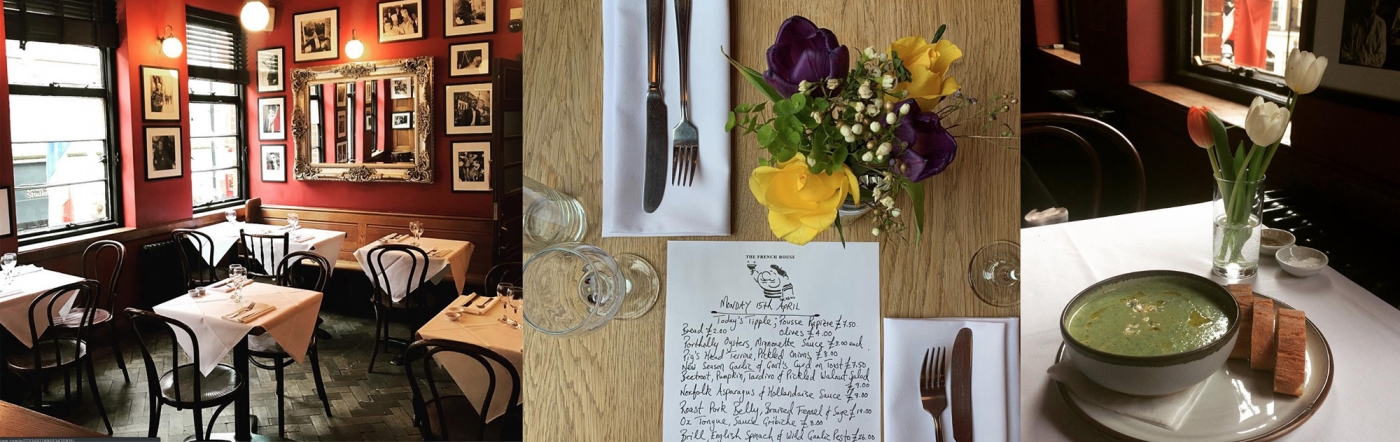 THE FRENCH HOUSE
MONDAY 15th APRIL
Today's Tipple; Pousse Rapière £7.50
Bread £2.20 Olives £4.00
Porthilly Oysters, Mignonette Sauce £3.00 each
Pig's Head Terrine, Pickled Onions £8.00
New Season Garlic & Goat's Curd on Toast £7.50
Beetroot, Pumpkin, Tardivo & Pickled Walnut Salad
£7.00
Norfolk Asparagus & Hollandaise Sauce £9.00
Roast Pork Belly, Braised Fennel & Sage £19.00
Ox Tongue, Sauce Gribiche £8.00
Brill, English Spinach & Wild Garlic Pesto £26.00